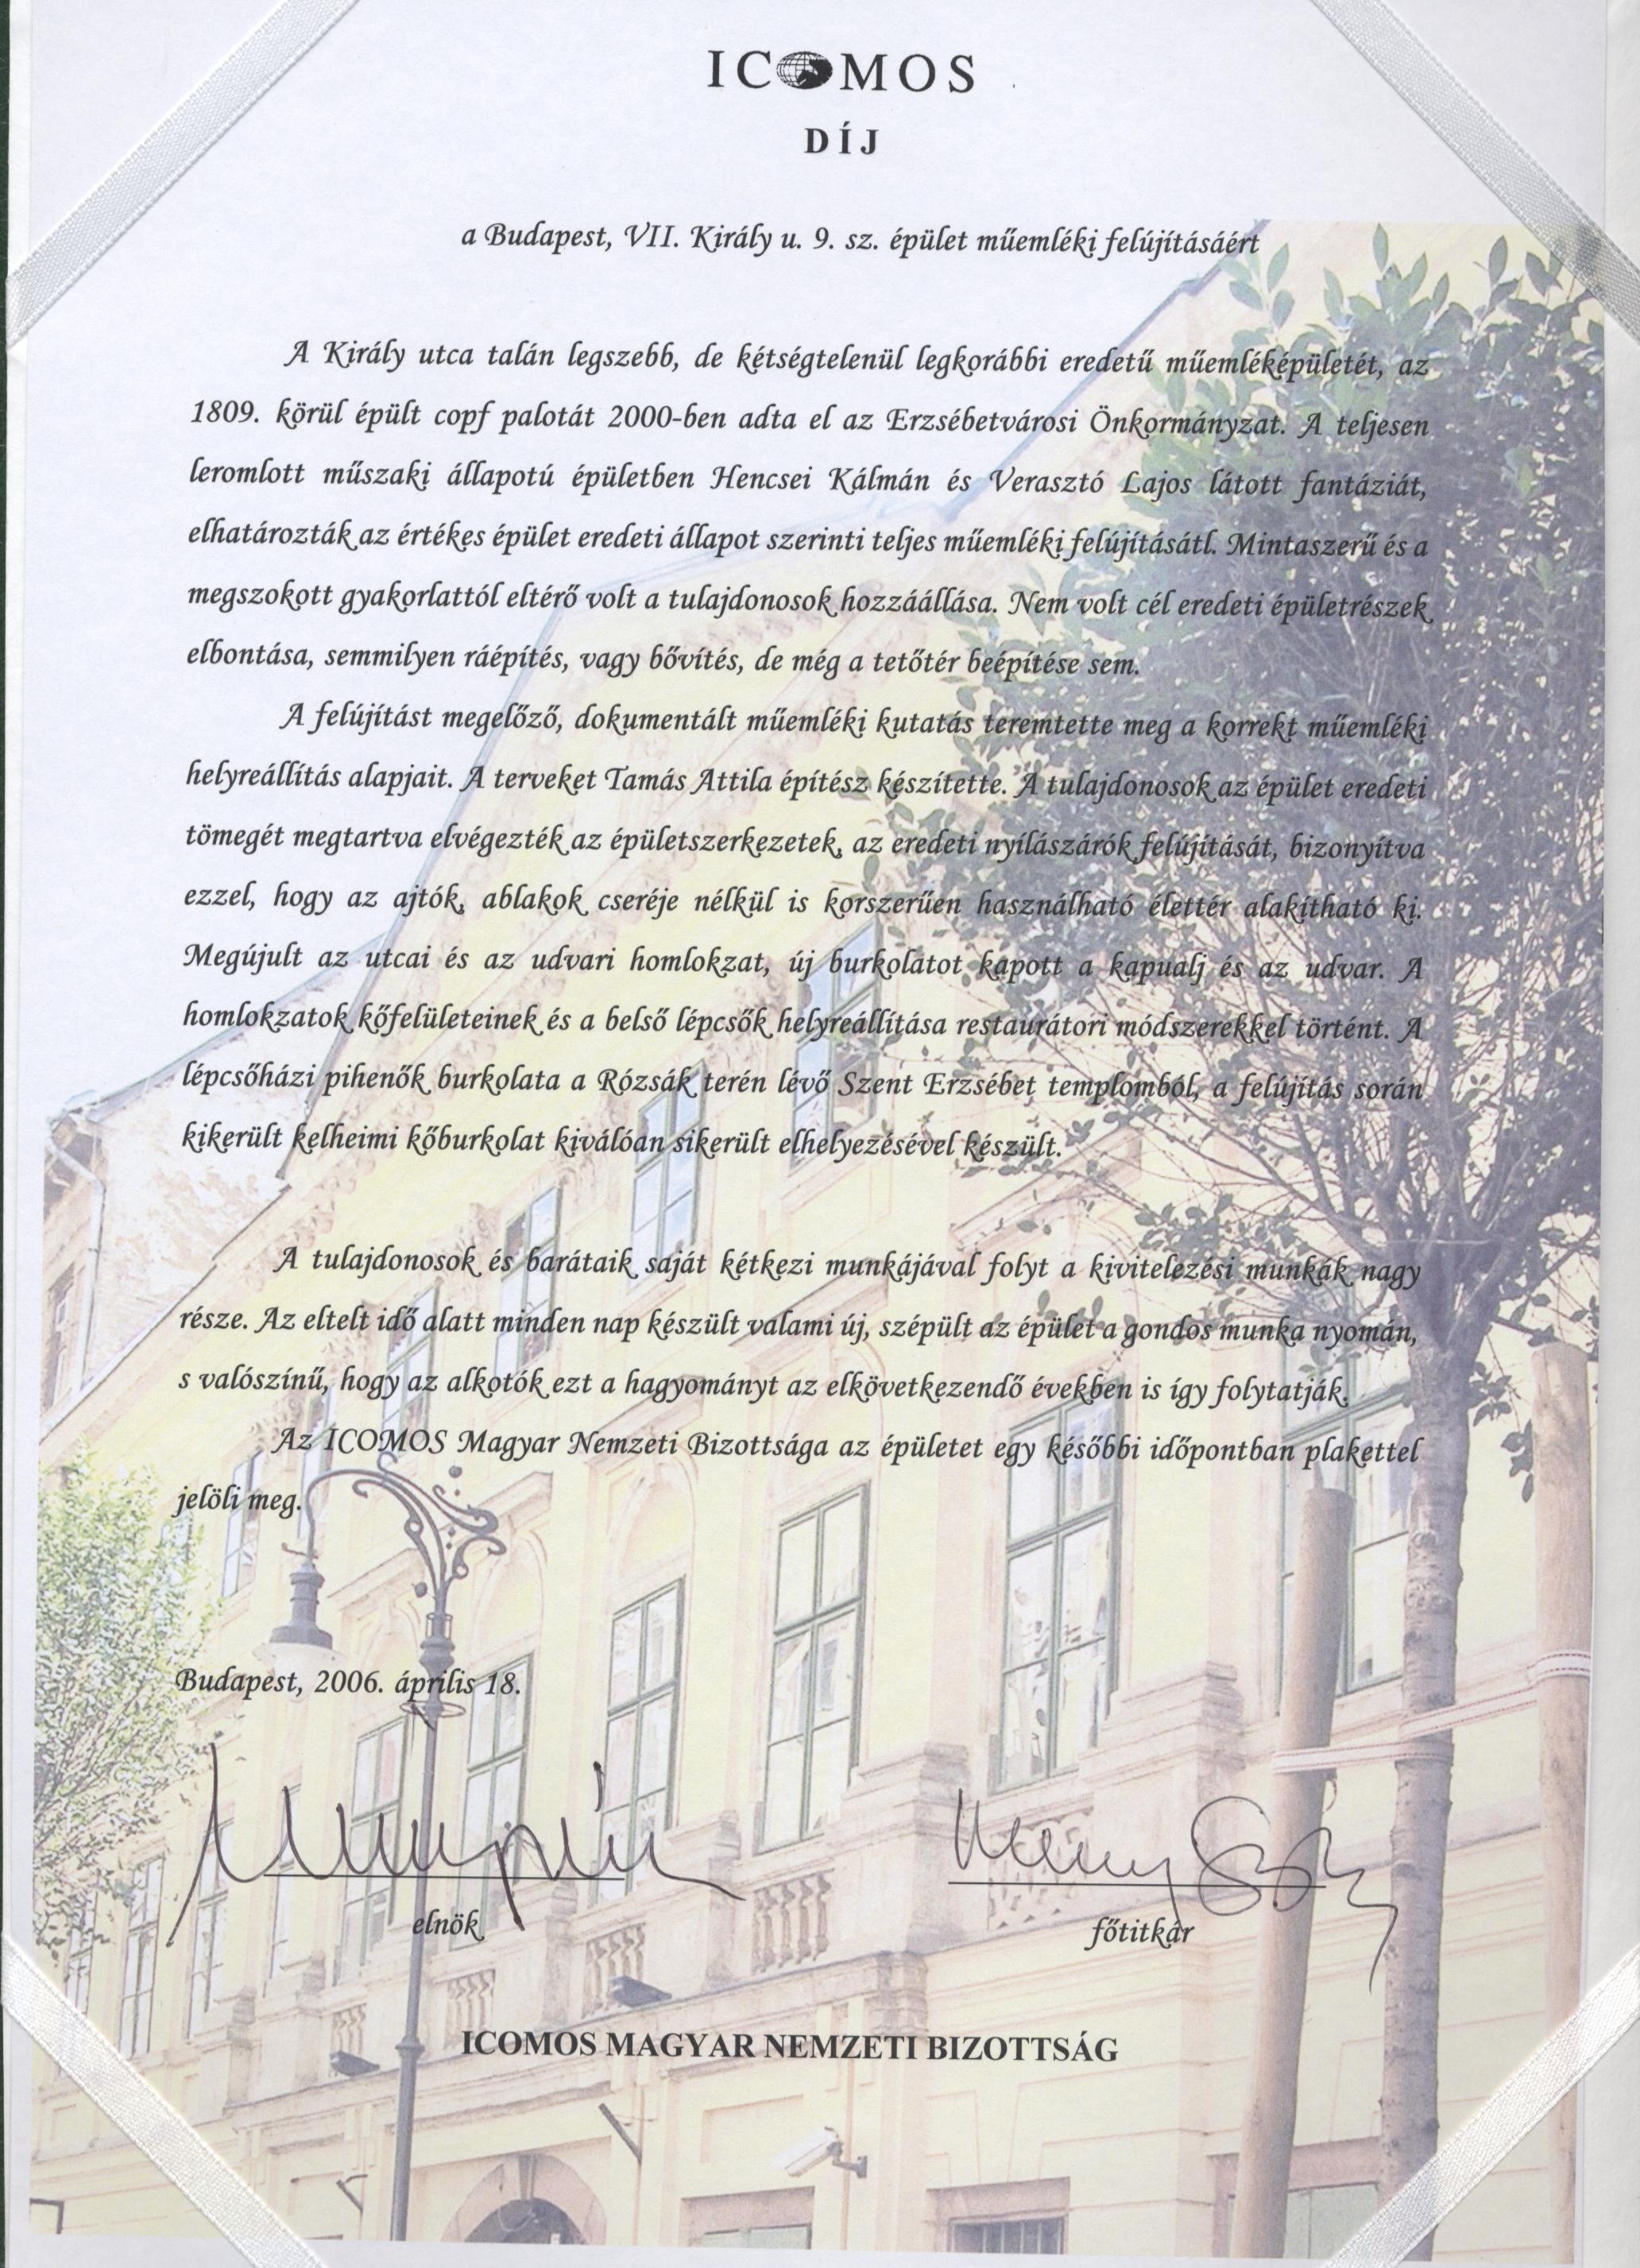 ICOMOS
DÍJ
a Budapest, VII. Király u. 9. sz. épület műemléki felújításáért
A Király utca talán legszebb, de kétségtelenül legkorábbi eredetű műemléképületét, az
1809. körül épült copf palotát 2000-ben adta el az Erzsébetvárosi Önkormányzat. A teljesen
leromlott műszaki állapotú épületben Hencsei Kálmán és Verasztó Lajos látott fantáziát,
elhatározták az értékes épület eredeti állapot szerinti teljes műemléki felújításátl. Mintaszerű és a
megszokott gyakorlattól eltérő volt a tulajdonosok hozzáállása. Nem volt cél eredeti épületrészek
elbontása, semmilyen ráépítés, vagy bővítés, de még a tetőtér beépítése sem.
A felújítást megelőző, dokumentált műemléki kutatás teremtette meg a korrekt műemléki
helyreállítás alapjait. A terveket Tamás Attila építész készítette. A tulajdonosok az épület eredeti
tömegét megtartva elvégezték az épületszerkezetek, az eredeti nyílászárók felújítását, bizonyítva
ezzel, hogy az ajtók, ablakok cseréje nélkül is korszerűen használható élettér alakítható ki.
Megújult az utcai és az udvari homlokzat, új burkolatot kapott a kapualj és az udvar. A
homlokzatok kőfelületeinek és a belső lépcsők helyreállítása restaurátori módszerekkel történt. A
lépcsőházi pihenők burkolata a Rózsák terén lévő Szent Erzsébet templomból, a felújítás során
kikerült kelheimi kőburkolat kiválóan sikerült elhelyezésével készült.
A tulajdonosok és barátaik saját kétkezi munkájával folyt a kivitelezési munkák nagy
része. Az eltelt idő alatt minden nap készült valami új, szépült az épület a gondos munka nyomán,
s valószínű, hogy az alkotók ezt a hagyományt az elkövetkezendő években is így folytatják.
Az ICOMOS Magyar Nemzeti Bizottsága az épületet egy későbbi időpontban plakettel
jelöli meg.
Budapest, 2006. április 18.
elnök
főtitkár
ICOMOS MAGYAR NEMZETI BIZOTTSÁG